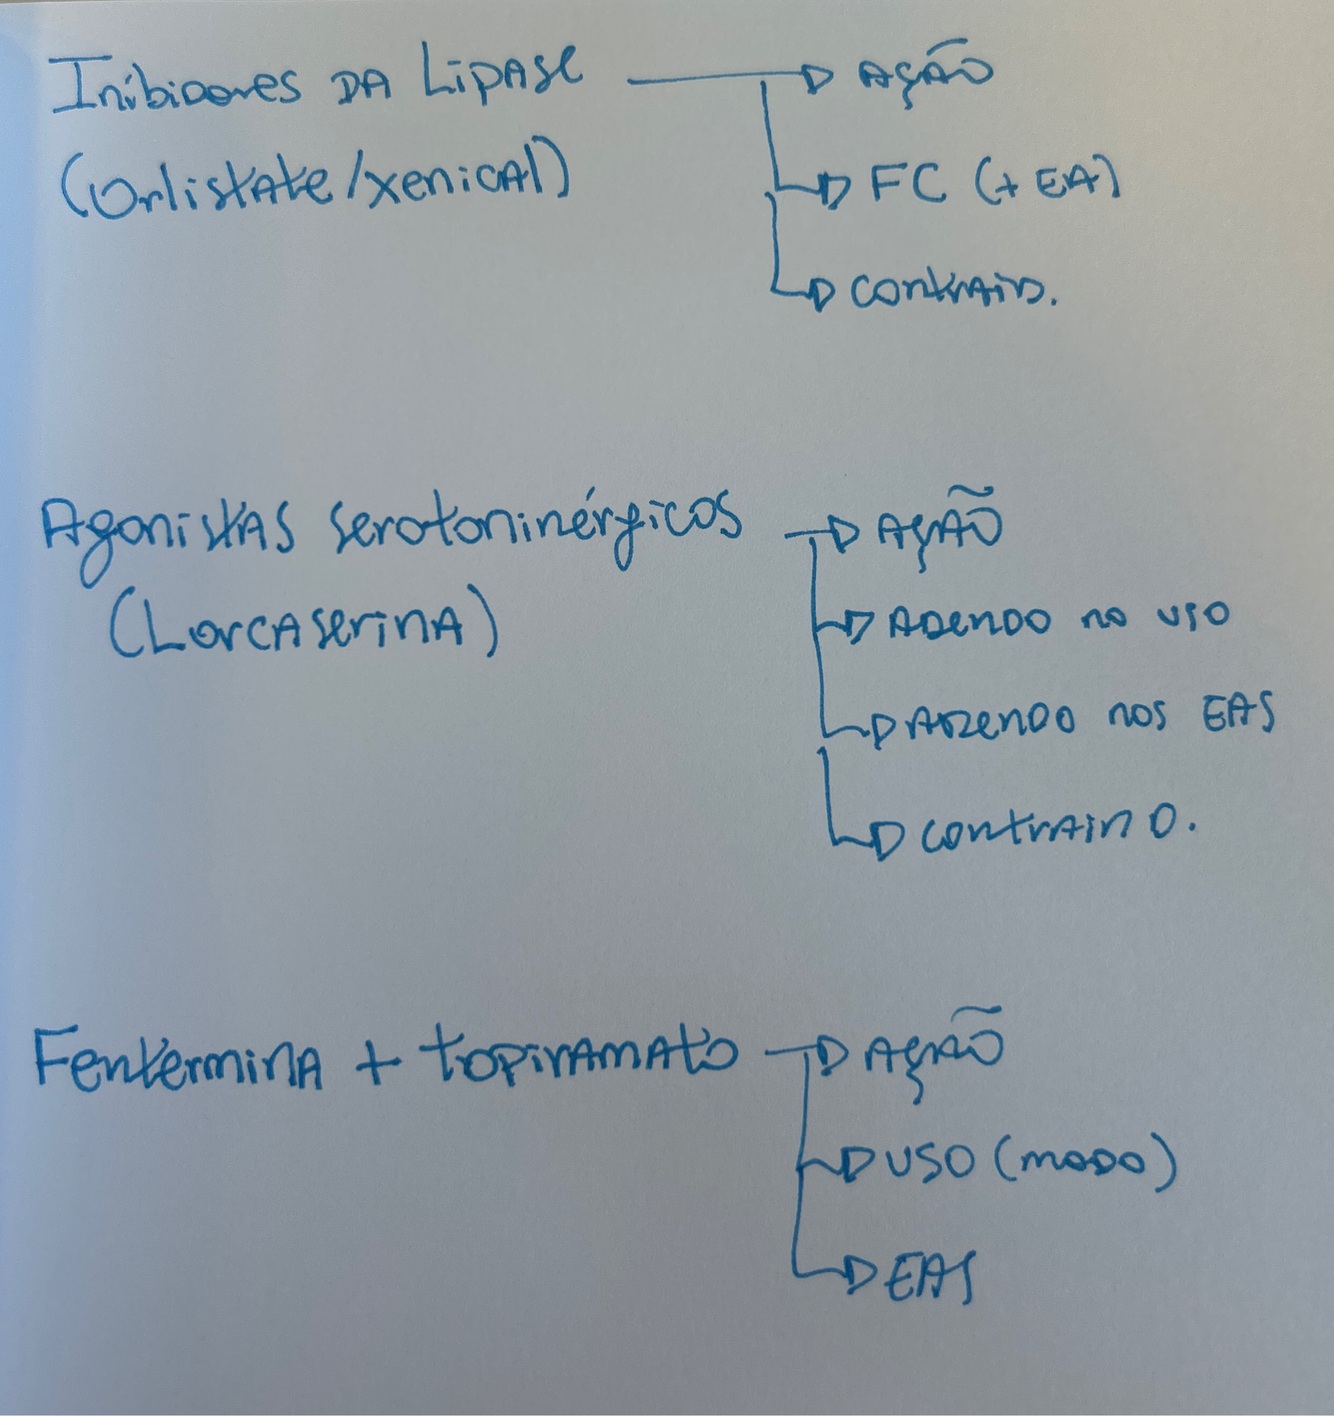 Inibidores DA Lipase → AÇÃO
(Orlistate/xenical) → FC (+ EA)
→ contraid.
Agonistas serotoninérgicos → AÇÃO
(Lorcaserina) → ADENDO no uso
→ ADENDO nos EAS
→ contraind.
Fentermina + topiramato → AÇÃO
→ USO (modo)
→ EAS